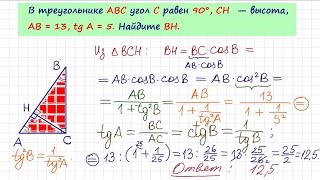 В треугольнике ABC угол C равен 90°, CH — высота,
AB = 13, tg A = 5. Найдите BH.
Из △BCH: BH = BC·cosB =
= AB·cosB
= AB·cosB·cosB = AB·cos²B =
= AB / (1+tg²B) = AB / (1+ 1/tg²A) = 13 / (1+ 1/5²) =
B
H
A
C
tgA = BC/AC = ctgB = 1/tgB ;
tg²B = 1/tg²A
= 13 : (1 + 1/25) = 13 : 26/25 = 13 · 25/26 = 25/2 = 12,5.
Ответ: 12,5.